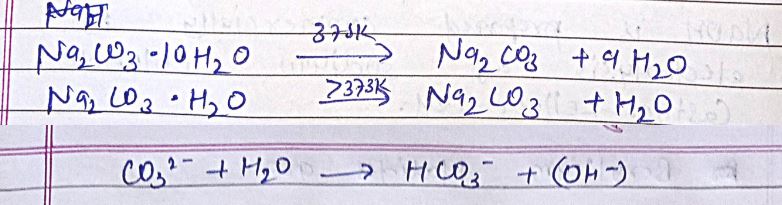 Na₂CO₃·10H₂O \xrightarrow{375K} Na₂CO₃ + 9H₂O
Na₂CO₃·H₂O \xrightarrow{>373K} Na₂CO₃ + H₂O
CO₃²⁻ + H₂O → HCO₃⁻ + (OH⁻)